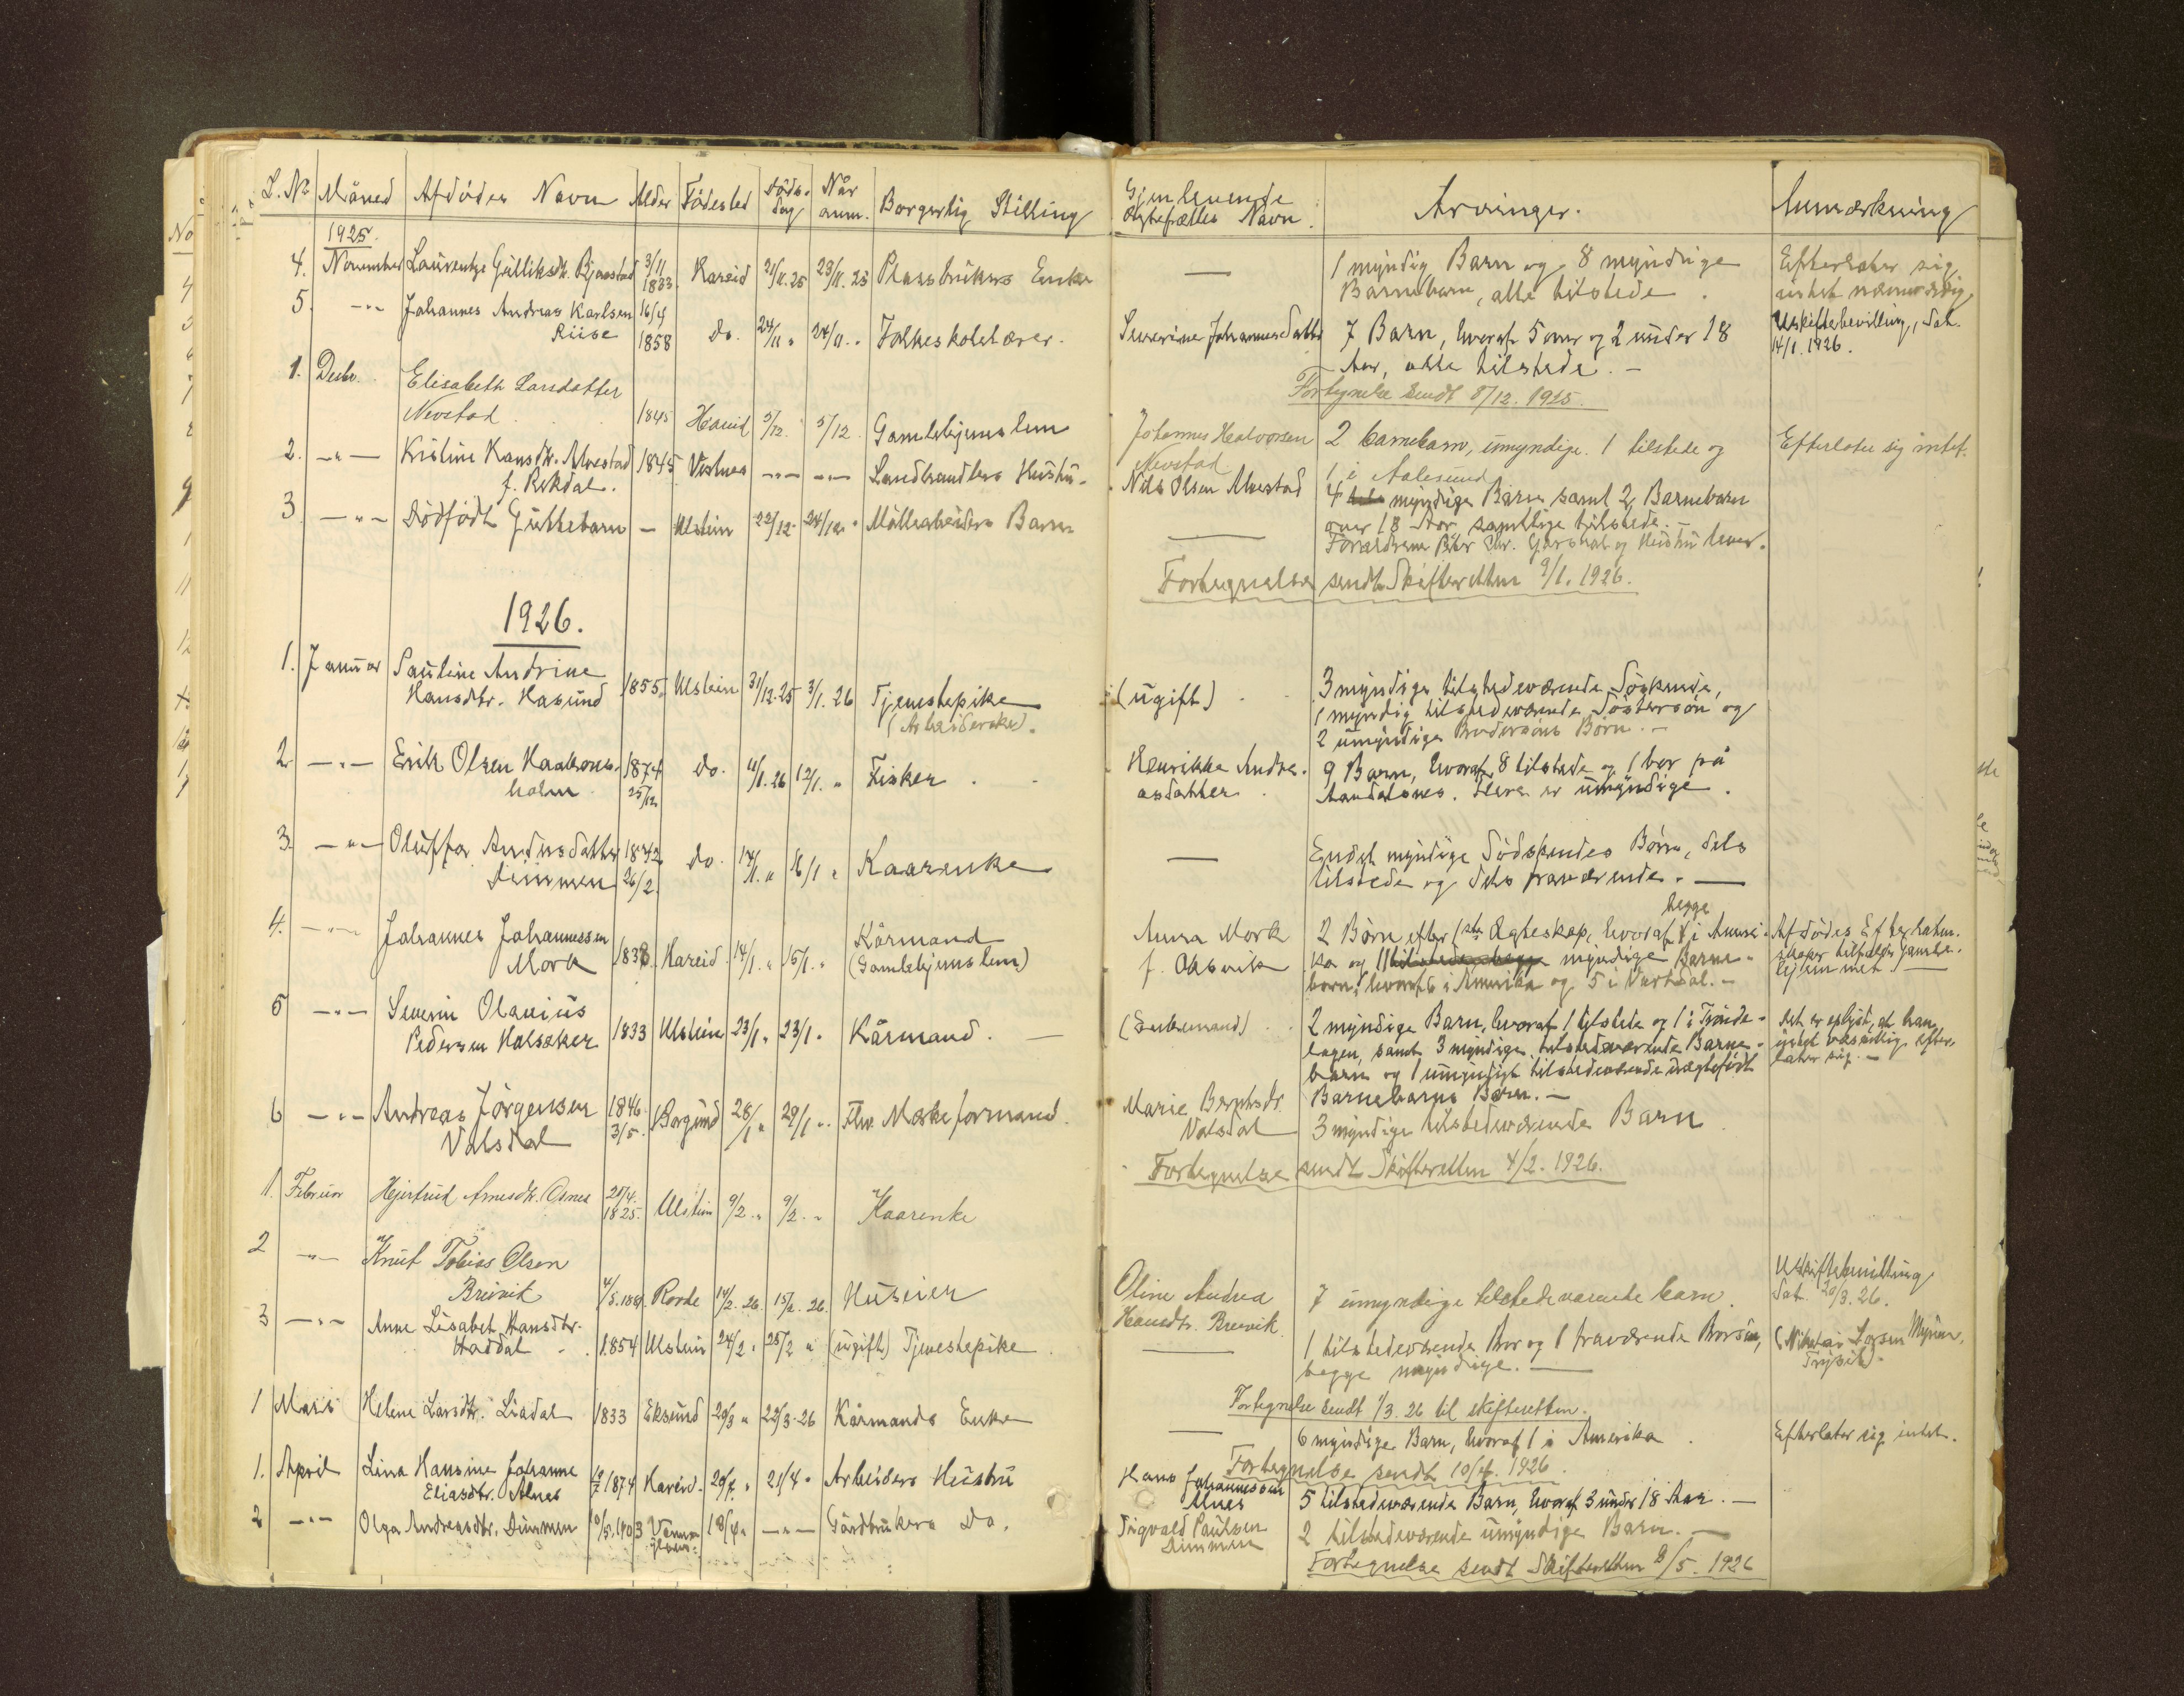 L. No Måned Afdödes Navn Alder Födested Döds-dag Når anm. Borgerlig Stilling Gjenlevende Ægtefælles Navn Arvinger. Anmærkning
1925
4. November Laurentze Gulliksdtr. Bjaastad 3/11 1833 Hareid 21/11.25 23/11.25 Plassbrukers Enke — 1 myndig Barn og 8 myndige
Barnebarn, alle tilstede. Efterlater sig intet nævneværdig
5. -"- Johannes Andreas Karlsen Riise 16/4 1858 do. 24/11 " 24/11. " Folkeskolelærer. Severine Johannesdatter 7 Barn, hvoraf 5 over og 2 under 18
Aar, alle tilstede. — Uskiftebevilling, dat. 14/1.1926.
Fortegnelse sendt 8/12. 1925.
1. Decbr. Elisabeth Larsdatter Nevstad 1845 Hareid 3/12. 5/12. Gamlehjemslem Johannes Halvorsen Nevstad 2 barnebarn, umyndige. 1 tilstede og
1 i Aalesund Efterlater sig intet.
2. -"- Kristine Hansdtr. Alvestad f. Rekdal. 1845 Vestnes -"- -"- Landhandlers Hustru. Nils Olsen Alvestad 4 myndige Barn samt 2 Barnebarn
over 18 Aar samtlige tilstede. —
3 -"- Dödfödt Guttebarn — Ulstein 22/12. 24/12. " Möllearbeiders Barn — Forældrene Peter Chr. Garshol og Hustru lever.
Fortegnelse sendt Skifteretten 9/1. 1926.
1926.
1. Januar Pauline Andrine Hansdtr. Hasund 1855 Ulstein 31/12.25 3/1.26 Tjenestepike
(Arbeiderske). (ugift) 3 myndige tilstedeværende Söskende,
1 myndig tilstedeværende Söstersön og
2 umyndige Brodersöns Börn. —
2. -"- Erik Olsen Haakonsholm 1874 25/12 do. 11/1.26 12/1. " Fisker Henrikke Andreasdatter 9 Barn, hvoraf 8 tilstede og 1 bor på
Aandalsnes. Flere er umyndige.
3. -"- Oluffa Andersdatter Dimmen 1842 26/2 do. 14/1. " 16/1 " Kaarenke — Endel myndige Södskendes Börn, dels
tilstede og dels fraværende. —
4. -"- Johannes Johannessen Mork 1838 Hareid 14/1. " 15/1. " Kårmand
(Gamlehjemslem) Anna Mork f. Oksvik 2 Börn efter 1ste Ægteskap, hvoraf begge i Amerika og 11 myndige Barnebarn, hvoraf 6 i Amerika og 5 i Vartdal. — Afdödes Efterladenskaper tilfalder Gamlehjemmet —
5 -"- Severin Olavius Pedersen Halsaker 1833 Ulstein 23/1. " 23/1. " Kårmand. — (Enkemand) 2 myndige Barn, hvoraf 1 tilstede og 1 i Tröndelagen, samt 3 myndige tilstedeværende Barnebarn og 1 umyndigt tilstedeværende uægtefödt
Barnebarns Barn. — Det er oplyst, at han intet væsentlig efterlater sig. —
6 -"- Andreas Jörgensen Valsdal 1846 3/5. Borgund 28/1 " 29/1 ". Fhv. Mæskeformand. Marie Berntsdr. Valsdal 3 myndige tilstedeværende Barn
Fortegnelse sendt Skifteretten 4/2. 1926.
1. Februar Hjertrud Arnesdtr. Osnes 25/4. 1825. Ulstein 9/2. " 9/2. " Kaarenke
2 -"- Knut Tobias Olsen Breivik 4/5.1881 Rovde 14/2.26. 15/2.26. Huseier Oline Andrea Hansdtr. Breivik 7 umyndige tilstedeværende barn. Uskiftebevilling dat. 20/3.26.
3 -"- Anne Lisabet Hansdtr. Haddal 1854 Ulstein 24/2 " 25/2 " (ugift) Tjenestepike — 1 tilstedeværende Bror og 1 fraværende Brorsön,
begge myndige. — (Nikolai Larsen Myren, Trysil).
Fortegnelse sendt 1/3.26 til skifteretten.
1 Mars Helene Larsdtr. Liadal 1833 Eksund 20/3 " 22/3-26 Kårmands Enke — 6 myndige Barn, hvoraf 1 i Amerika. Efterlater sig intet.
Fortegnelse sendt 10/4. 1926.
1. April Lina Hansine Johanne Eliasdtr. Alnes 1874 Hareid. 20/4. " 21/4 " Arbeiders Hustru Hans Johannessen Alnes 5 tilstedeværende Barn, hvoraf 3 under 18 Aar. —
2 -"- Olga Andreasdtr. Dimmen 10/5.1903 Vannylven: 18/4 " -"- Gårdbrukers do. Sigvald Paulsen Dimmen 2 tilstedeværende umyndige Barn. —
Fortegnelse sendt Skifteretten /5. 1926